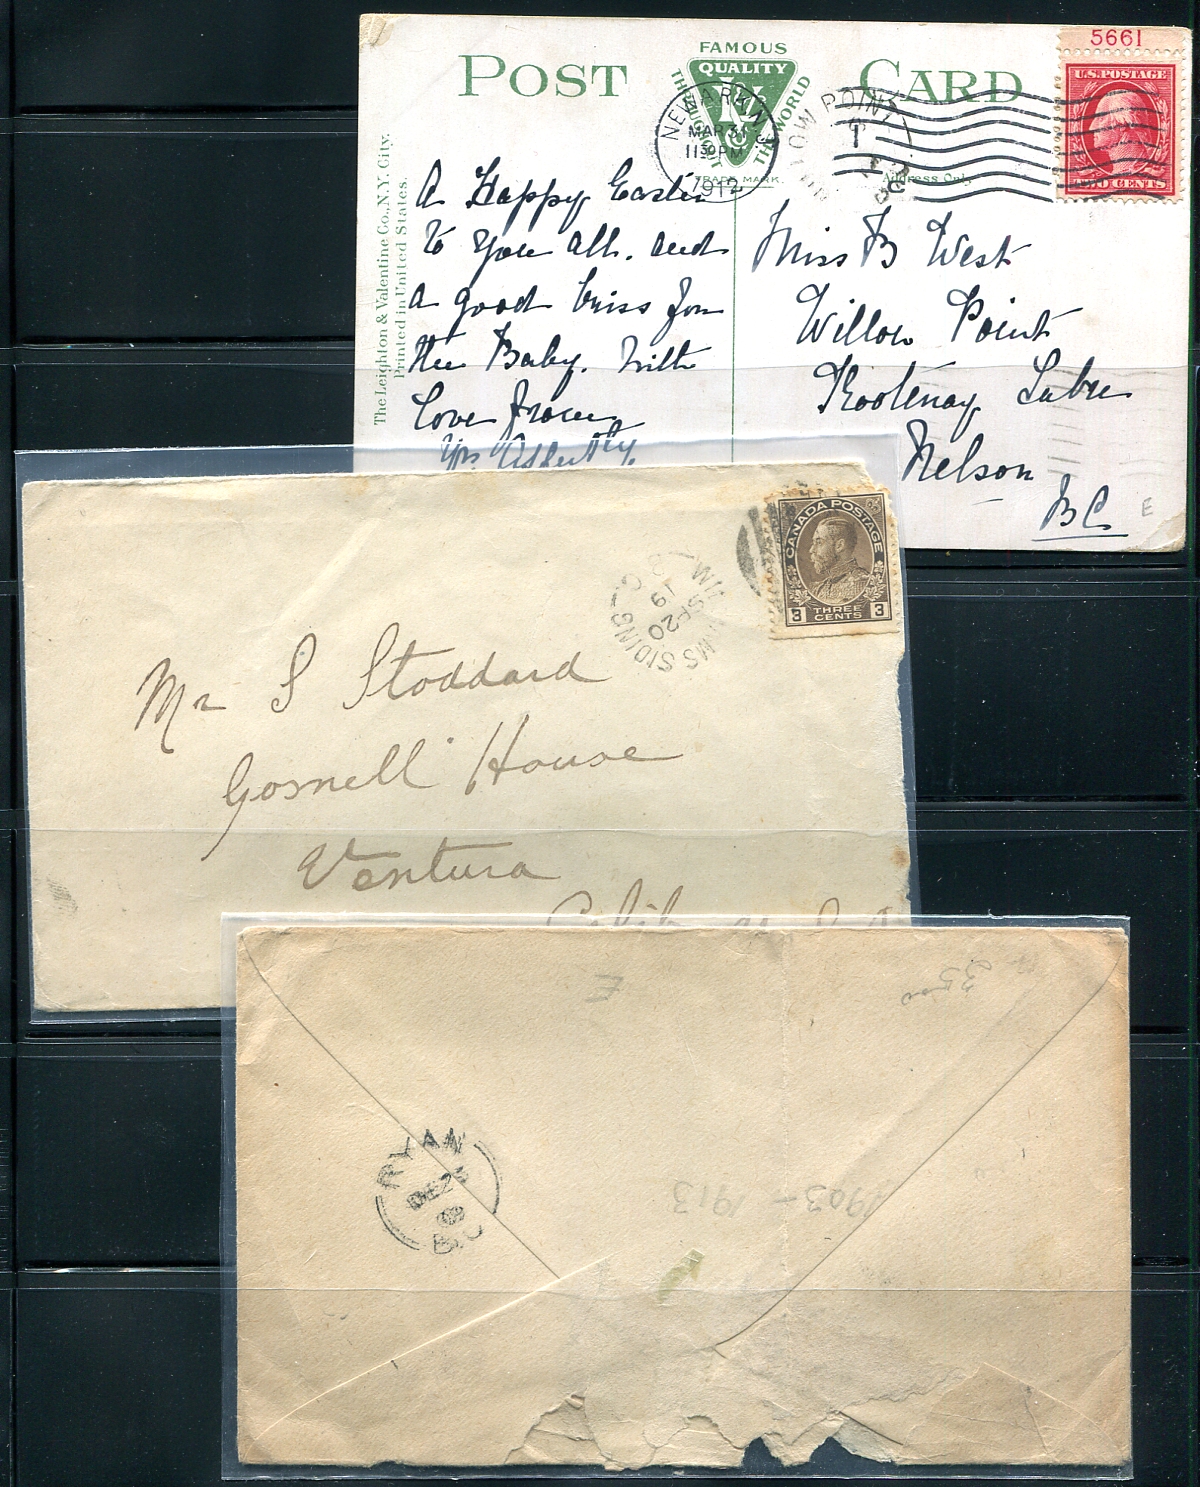 5661
POST CARD
FAMOUS
QUALITY
THROUGHOUT THE WORLD
TRADE MARK
Address Only
U.S. POSTAGE
TWO CENTS
NEWARK, N.J.
MAR 31
11 30 PM
1912
LOW POINT
The Leighton & Valentine Co., N.Y. City.
Printed in United States.
A Happy Easter
to you all. and
a good kiss for
the Baby. With
Love from
Miss B West
Willow Point
Kootenay Lake
Nelson
B C
E
CANADA POSTAGE
3 THREE CENTS 3
SIDING
SP 20
19
Mr S Stoddard
Gosnell House
Ventura
E
RYAN
B.C.
1903 - 1913